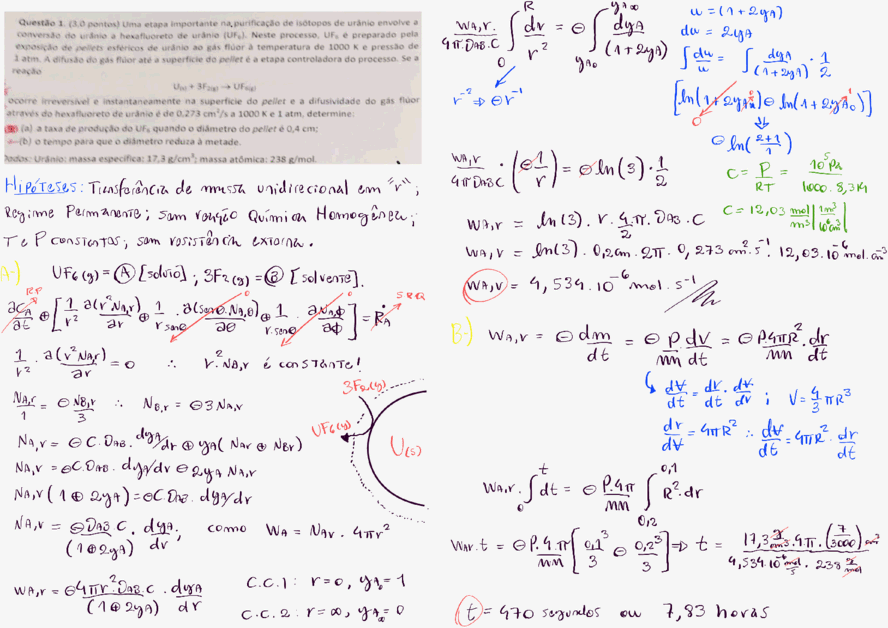 Questão 1. (3,0 pontos) Uma etapa importante na purificação de isótopos de urânio envolve a
conversão do urânio a hexafluoreto de urânio (UF₆). Neste processo, UF₆ é preparado pela
exposição de pellets esféricos de urânio ao gás flúor à temperatura de 1000 K e pressão de
1 atm. A difusão do gás flúor até a superfície do pellet é a etapa controladora do processo. Se a
reação
U(s) + 3F₂(g) → UF₆(g)
ocorre irreversível e instantaneamente na superfície do pellet e a difusividade do gás flúor
através do hexafluoreto de urânio é de 0,273 cm²/s a 1000 K e 1 atm, determine:
(a) a taxa de produção do UF₆ quando o diâmetro do pellet é 0,4 cm;
(b) o tempo para que o diâmetro reduza à metade.
Dados: Urânio: massa específica: 17,3 g/cm³; massa atômica: 238 g/mol.
Hipóteses: Transferência de massa unidirecional em "r";
Regime Permanente; sem reação Química Homogênea;
T e P constantes; sem resistência externa.
A-) UF6(g) = Ⓐ [soluto]; 3F2(g) = Ⓑ [solvente].
RP 0 0 SRQ
∂CA/∂t ⊕ [1/r² ∂(r²NA,r)/∂r ⊕ 1/(r.senθ) . ∂(senθ.NA,θ)/∂θ ⊕ 1/(r.senθ) . ∂NA,Φ/∂Φ] = ṘA
1/r² . ∂(r²NA,r)/∂r = 0 ∴ r².NB,r é constante!
NA,r/1 = ⊖NB,r/3 ∴ NB,r = ⊖3NA,r
3F2(g)
UF6(g)
U(s)
NA,r = ⊖C.DAB.dyA/dr ⊕ yA(NAr ⊕ NBr)
NA,r = ⊖C.DAB.dyA/dr ⊖ 2yA NA,r
NA,r(1 ⊕ 2yA) = ⊖C.DAB.dyA/dr
NA,r = ⊖DAB.C/(1⊕2yA) . dyA/dr, como WA = NAr.4πr²
WA,r = ⊖4πr².DAB.C/(1⊕2yA) . dyA/dr
C.C.1: r=0, yA₀=1
C.C.2: r=∞, yA∞=0
WA,r/(4π.DAB.C) ∫₀ᴿ dr/r² = ⊖ ∫ yA₀ yA∞ dyA/(1+2yA)
r⁻² ⇒ ⊖r⁻¹
u = (1+2yA)
du = 2yA
∫ du/u = ∫ dyA/(1+2yA) . 1/2
[ln(1+2yA∞) ⊖ ln(1+2.yA₀)]
0 1
0
⇓
⊖ln((2+1)/1)
WA,r/(4πDABC) . (⊖1/r) = ⊖ln(3).1/2
C = P/RT = 10⁵Pa/(1000.8,314)
C = 12,03 mol/m³ |1m³/10⁶cm³|
WA,r = ln(3).r.4/2 π.DAB.C
WA,r = ln(3).0,2cm.2π.0,273cm².s⁻¹.12,03.10⁻⁶mol.cm⁻³
WA,r = 4,534.10⁻⁶ mol.s⁻¹
B-) WA,r = ⊖dm/dt = ⊖ρ/MM . dV/dt = ⊖ρ.4πR²/MM . dr/dt
dV/dt = dr/dt . dV/dr ; V = 4/3 πR³
dr/dV = 4πR² ∴ dV/dt = 4πR² . dr/dt
WA,r.∫₀ᵗ dt = ⊖ρ.4π/MM ∫ 0,2 0,1 R².dr
WAr.t = ⊖ρ.4.π/MM [0,1³/3 ⊖ 0,2³/3] ⇒ t = 17,3 g/cm³.4π.(7/3000)cm³ / 4,534.10⁻⁶ mol/s . 238 g/mol
t = 470 segundos ou 7,83 horas